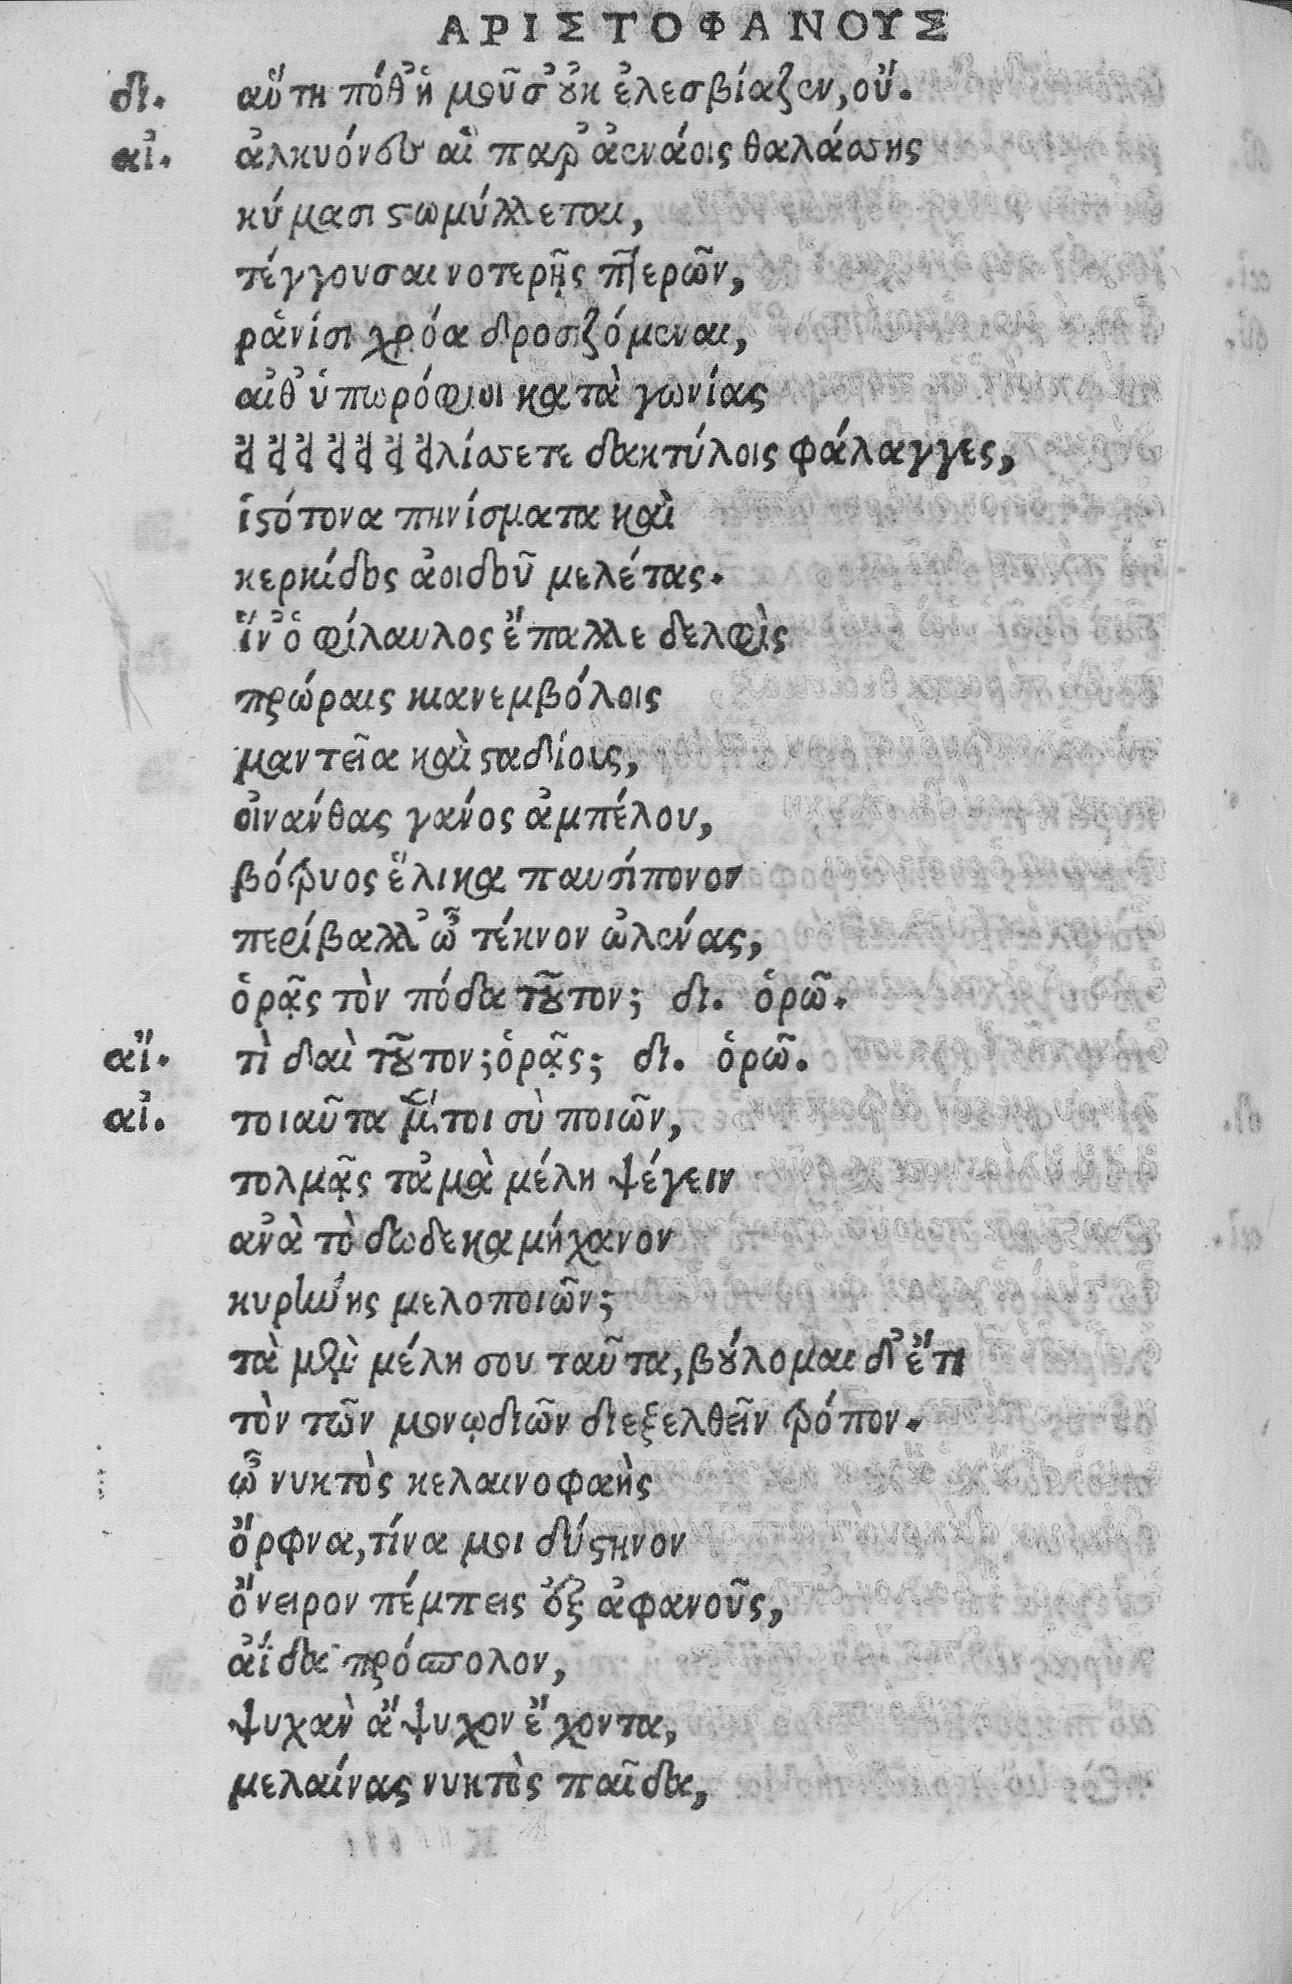 ΑΡΙΣΤΟΦΑΝΟΥΣ
δι. αὕτη πόθ' ἡ μοῦσ' οὐκ ἐλεσβίαζεν, οὔ.
αἰ. ἀλκυόνες αἳ παρ' ἀενάοις θαλάσσης
κύμασι στωμύλλεται,
τέγγουσαι νοτερῇς πτερῶν,
ῥανίσι χρόα δροσιζόμεναι,
αἱθ' ὑπωρόφιοι κατὰ γωνίας
εἱ εἱ εἱ εἱ εἱ εἱ εἱλίσσετε δακτύλοις φάλαγγες,
ἱστότονα πηνίσματα καὶ
κερκίδος ἀοιδοῦ μελέτας.
ἵν' ὁ φίλαυλος ἔπαλλε δελφὶς
πρώραις κυανεμβόλοις
μαντεῖα καὶ σταδίους,
οἰνάνθας γάνος ἀμπέλου,
βότρυος ἕλικα παυσίπονον
περίβαλλ' ὦ τέκνον ὠλένας,
ὁρᾷς τὸν πόδα τοῦτον; δι. ὁρῶ.
αἴ. τὶ δαὶ τοῦτον; ὁρᾷς; δι. ὁρῶ.
αἰ. τοιαῦτα μέντοι σὺ ποιῶν,
τολμᾷς τἀμὰ μέλη ψέγειν
ἀνὰ τὸ δωδεκαμήχανον
κυρήνης μελοποιῶν;
τὰ μὲν μέλη σου ταῦτα, βούλομαι δ' ἔτι
τὸν τῶν μονῳδιῶν διεξελθεῖν τρόπον.
ὦ νυκτὸς κελαινοφαὴς
ὄρφνα, τίνα μοι δύστηνον
ὄνειρον πέμπεις ἐξ ἀφανοῦς,
ἀΐδα πρόπολον,
ψυχὰν ἄψυχον ἔχοντα,
μελαίνας νυκτὸς παῖδα,